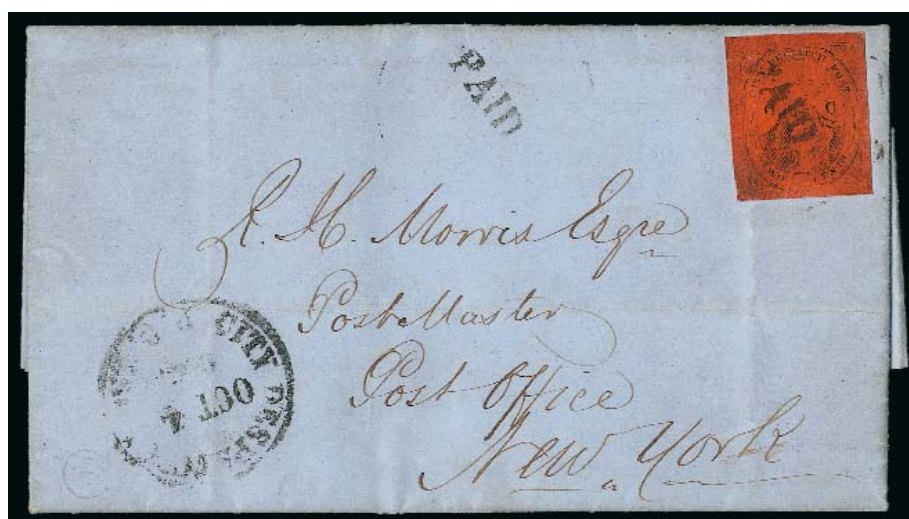 PAID
PAID
R. H. Morris Esqre
PostMaster
Post Office
New York
CITY DESPATCH
OCT 4